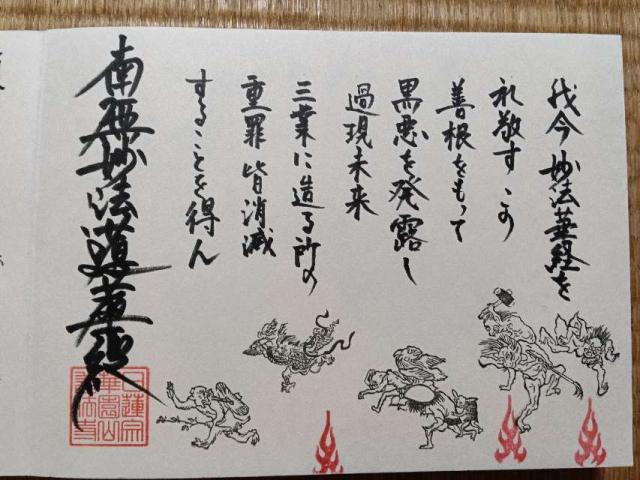 我今妙法華経を
礼敬すこの
善根をもって
黒悪を発露し
過現未来
三業に造る所の
重罪皆消滅
することを得ん
南無妙法蓮華経
日蓮宗